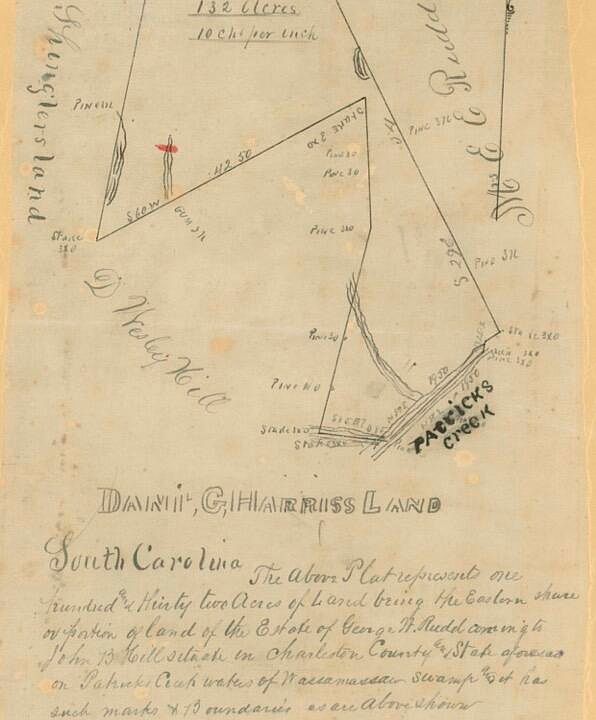 132 Acres
10 chs per inch
Shinglers land
Mrs E E Rudd
Pine 3X
STAKE 3X0
Pine 3X
42.50
S 60 W
Gum 3X
Pine 30
Pine 30
Pine 3X0
Stake
3X0
S 29 E
Pine 3X
D Wesley Hill
Stake 3X0
Pine 30
Pine 3X0
1950
1950
Pine X0
Stake 3X0
PATRICKS
Creek
DANIL, G, HARRISS LAND
South Carolina
The Above Plat represents one
hundred & thirty two Acres of Land being the Eastern share
or portion of land of the Estate of George W. Rudd coming to
John B Hill situate in Charleston County & State aforesad
on Patricks Creek waters of Wassamassaw Swamp & it has
such marks & Boundaries as are Above shown